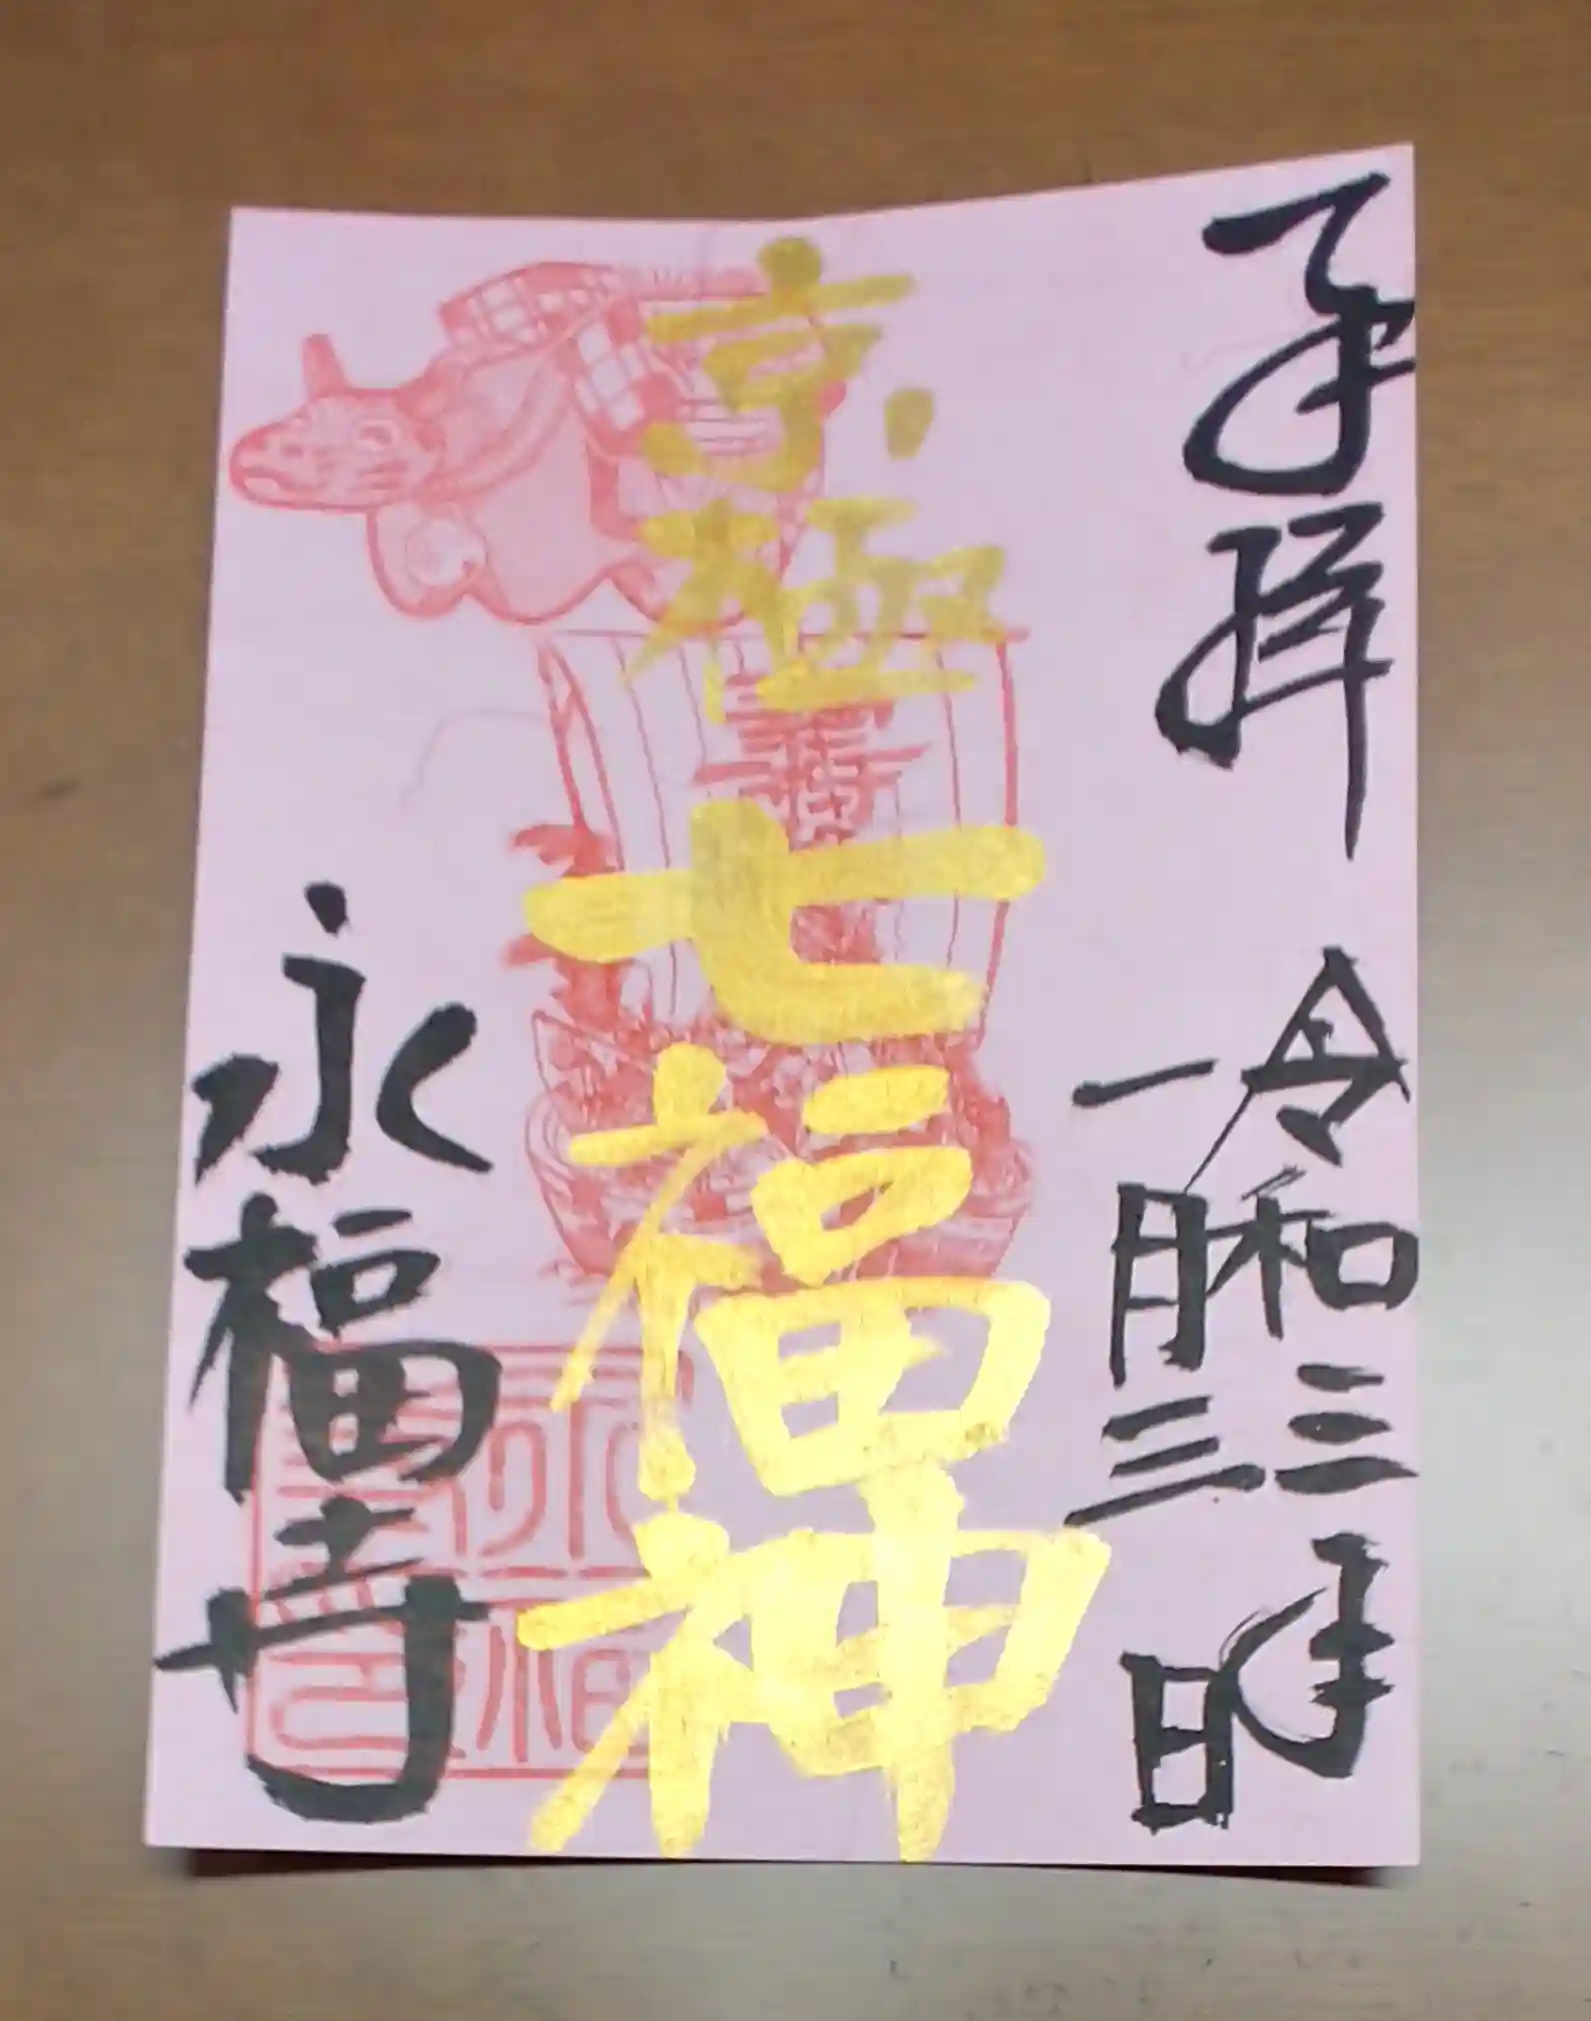 奉拝
令和三年
一月三日
京極
七福神
寿
永福寺